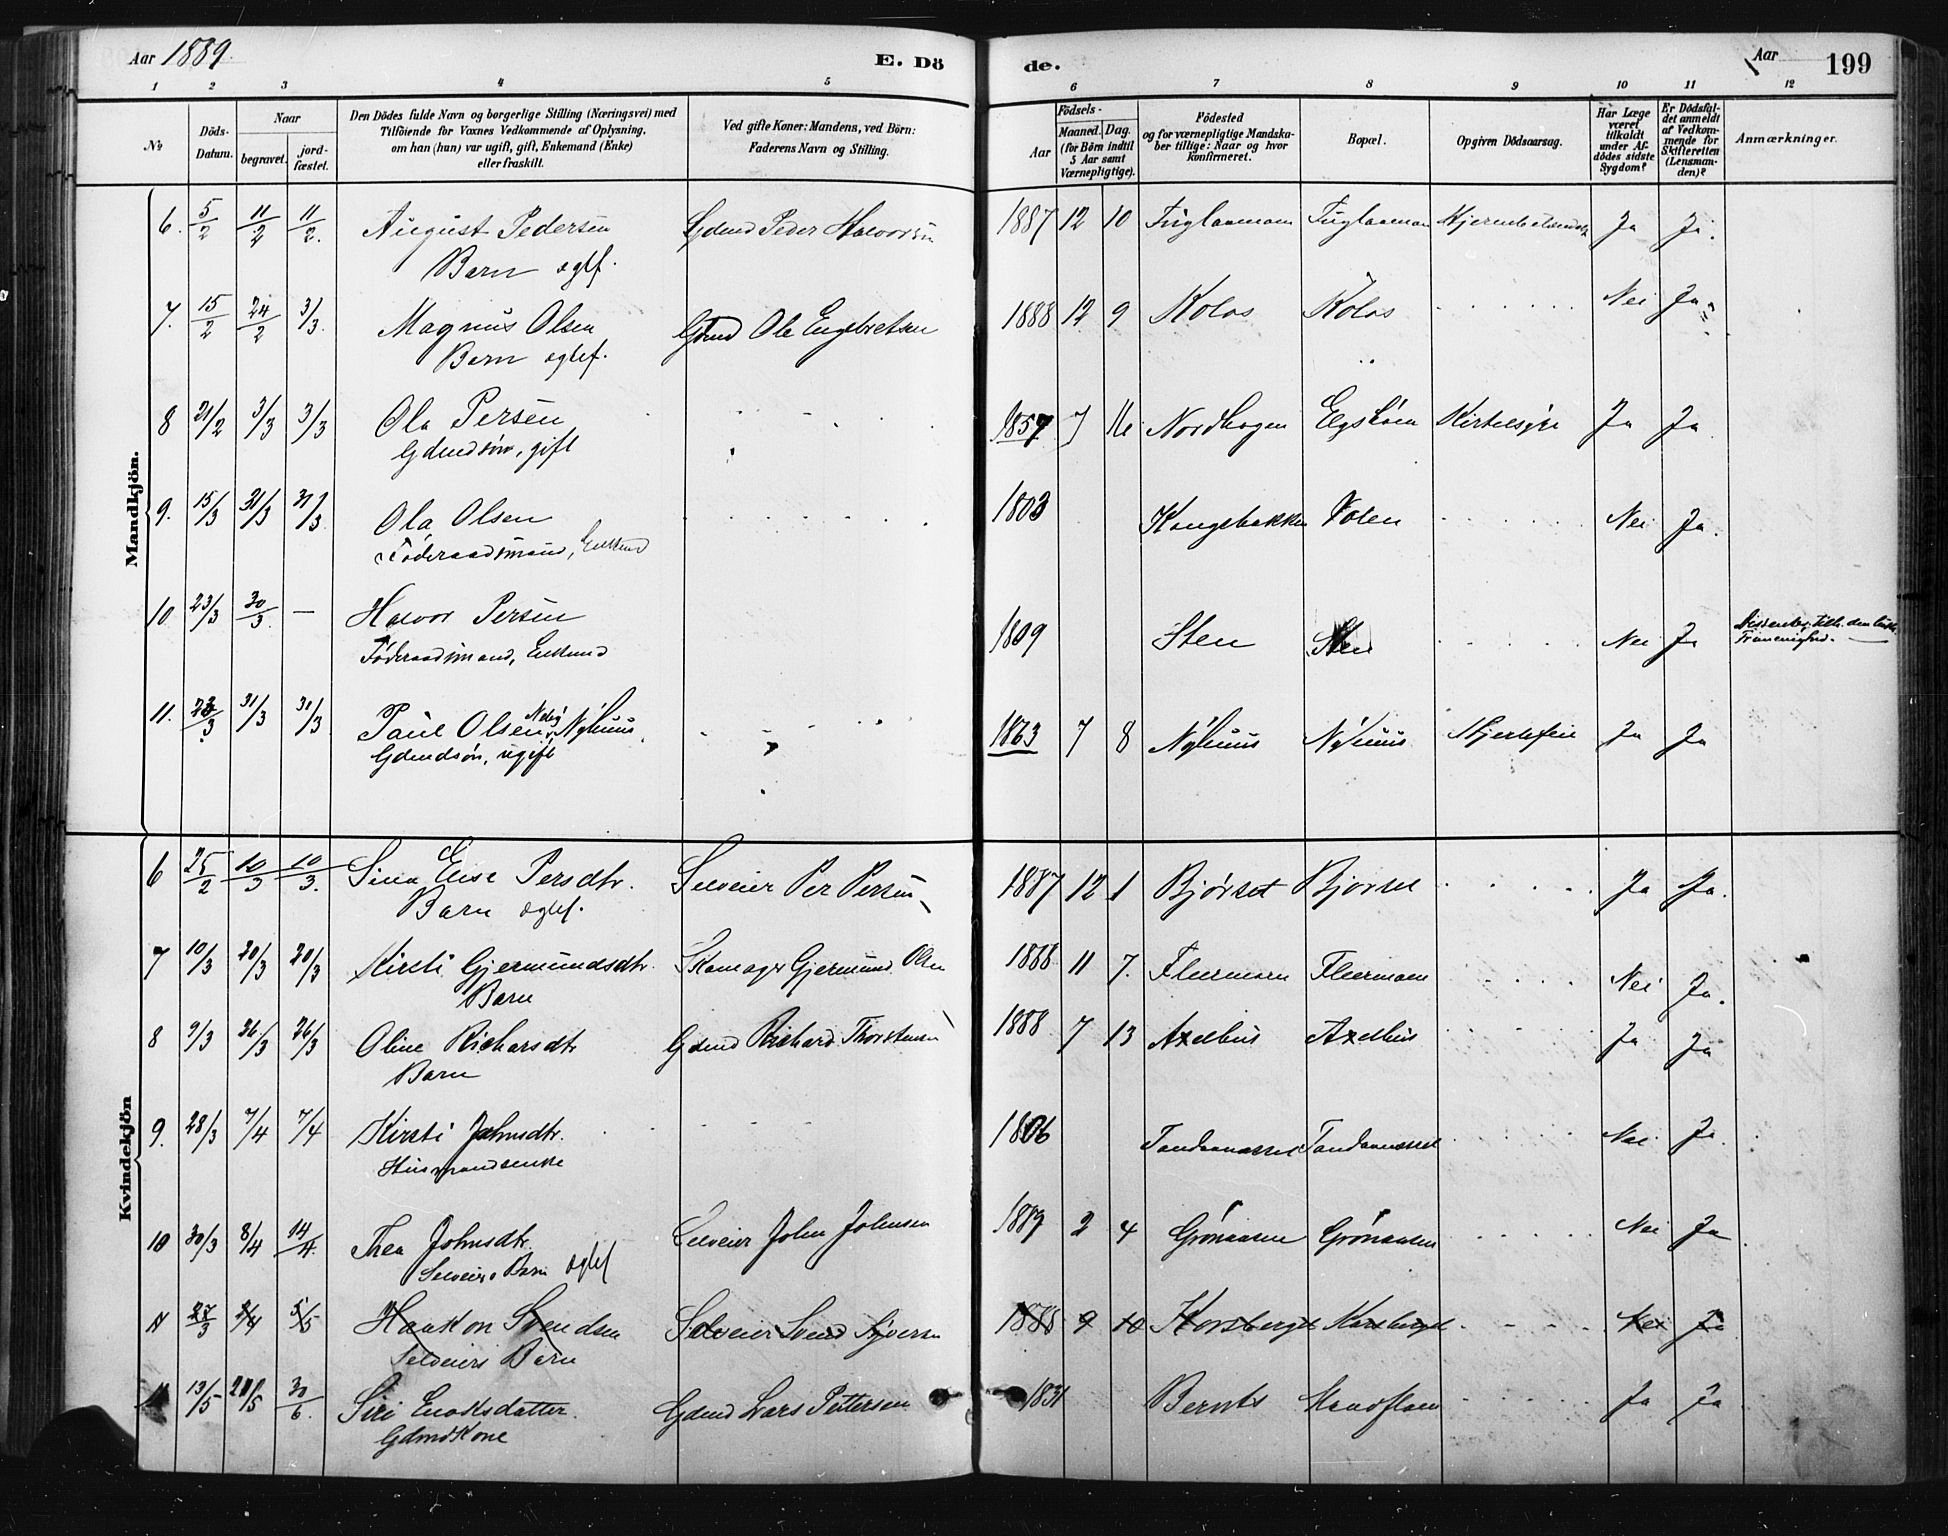 Aar 1889.
E. Dö
de.
Aar
199
1 2 3 4 5 6 7 8 9 10 11 12
No
Döds-Datum.
Naar
begravet.
jord-fæstet.
Den Dödes fulde Navn og borgerlige Stilling (Næringsvei) med
Tilföiende for Voxnes Vedkommende af Oplysning,
om han (hun) var ugift, gift, Enkemand (Enke)
eller fraskilt.
Ved gifte Koner: Mandens, ved Börn:
Faderens Navn og Stilling.
Födsels-
Aar
Maaned. Dag.
(for Börn indtil
5 Aar samt
Værnepligtige).
Födested
og for værnepligtige Mandska-
ber tillige: Naar og hvor
konfirmeret.
Bopæl.
Opgiven Dödsaarsag.
Har Læge
været
tilkaldt
under Af-
dödes sidste
Sygdom?
Er Dödsfal-
det anmeldt
af Vedkom-
mende for
Skifteretten
(Lensman-
den)?
Anmærkninger.
Mandkjön.
6. 5/2 11/2 11/2. August Pedersen Gdmd Peder Halvorsen 1887 12 10 Ja Ja.
Barn ogtef.
7. 15/2 24/2 3/3. Magnus Olsen Gdmd Ole Engebretsen 1888 12 9 Kolos Kolos Nei Ja
Barn ogtef.
8 21/2 3/3 3/3 Ola Persen 1857 7 16 Nordhagen Kirtelsyge Ja Ja
Gdmdsön, gift
9. 15/3 31/3 31/3 Ola Olsen 1803 Kongsbakken Volen Nei Ja.
Föderaadsmand, Enkmd
10 23/3 30/3 — Halvor Persen 1809 Sten Sten Nei Ja
Föderaadsmand, Enkemd
11. 23/3 31/3 31/3 Paul Olsen Nylhuus 1863 7 8 Nylhuus Nylhuus Hjertefeil Ja Ja
Gdmdsön, ugift
Kvindekjön
6 25/2 10/3 10/3. Sina Elise Persdtr. Selveier Per Persen 1887 12 1 Bjørset Bjørset Ja Ja.
Barn ogtef.
7 10/3 20/3 20/3 Kirsti Gjermundsdtr. Skomager Gjermund Olsen 1888 11 7. Nei Ja.
Barn
8 9/3 26/3 26/3 Oline Richarsdtr Gdmd Richard Thorstensen 1888 7 13 Axelhus Axelhus Ja Ja
Barn
9. 28/3 7/4 7/4 Kirsti Johnsdtr. 1806 Nei Ja
Husmandsenke
10 30/3 8/4 14/4. Thea Johnsdtr. Selveier John Johnsen 1889 2 4 Grönaasen Grönaasen Nei Ja
Selveiers Barn ogtef
11 27/3 2/4 5/5 Haakon Svendsen Selveier Svend Syversen 1888 9 10 Korsberget Korsberget Nei Ja
Selveiers Barn
11 13/5 21/5 30/6. Siri Enoksdatter Gdmd Lars Pettersen 1831 Bernts Ja Ja
Gdmdkone